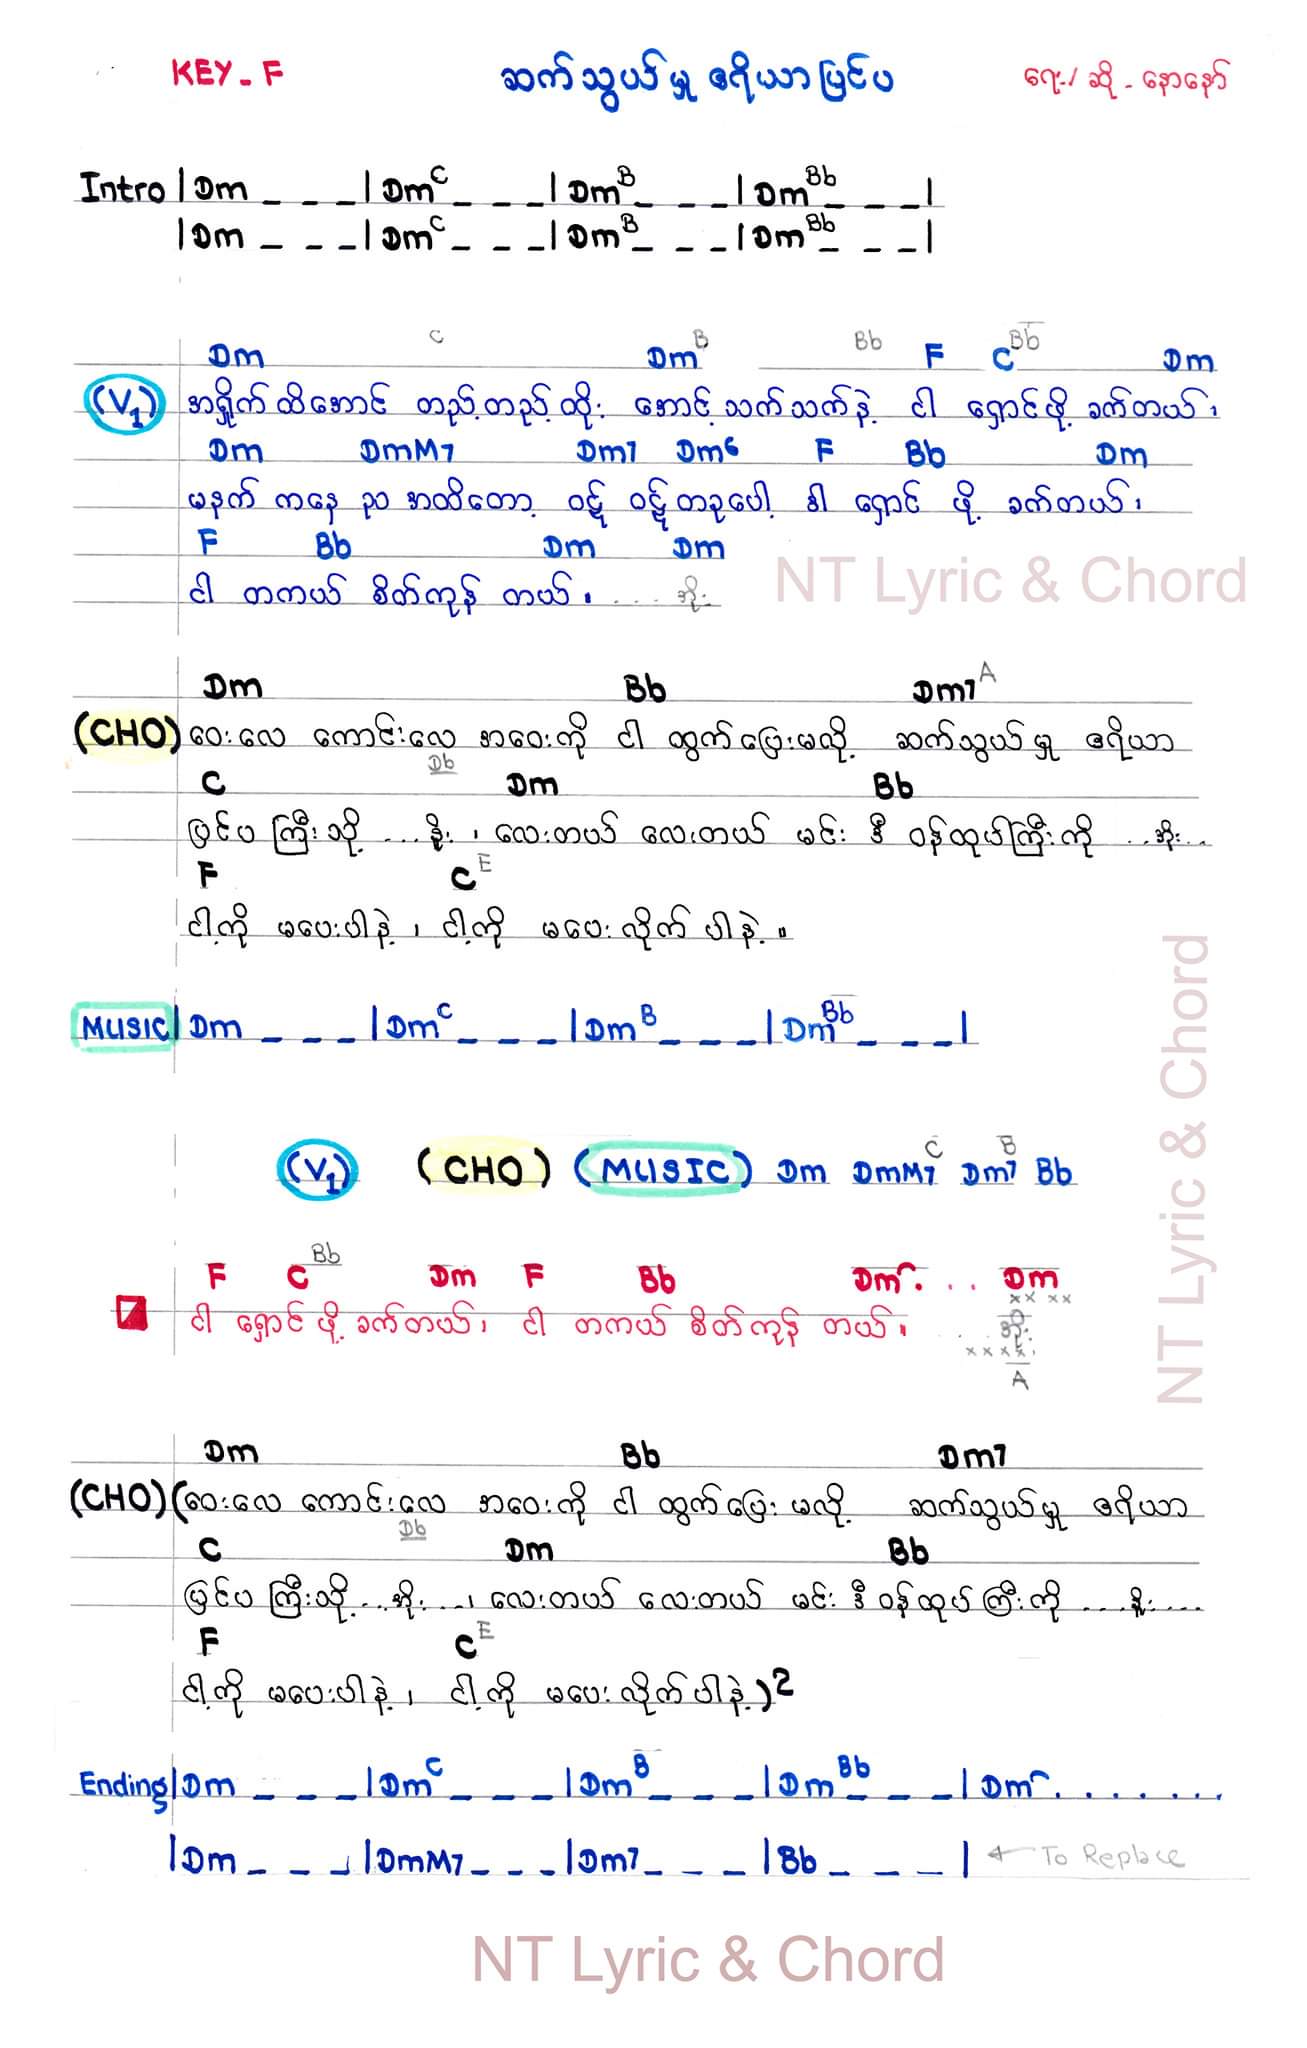 KEY - F ဆက်သွယ်မှု ဧရိယာပြင်ပ ရေး/ဆို - နောနော်
Intro |Dm _ _ _|DmC _ _ _|DmB _ _ _|DmBb _ _ _|
|Dm _ _ _|DmC _ _ _|DmB _ _ _|DmBb _ _ _|
Dm C DmB Bb F CBb Dm
(V1) အရှိုက်ထိအောင် တည့်တည့်ထိုး အောင့်သက်သက်နဲ့ ငါ ရှောင်ဖို့ ခက်တယ်၊
Dm DmM7 Dm7 Dm6 F Bb Dm
မနက် ကနေ ည အထိတော့ ဝဋ် ဝဋ်တခုပေါ့ ဒါ ရှောင် ဖို့ ခက်တယ်၊
F Bb Dm Dm
ငါ တကယ် စိတ်ကုန် တယ်။ .... အိုး
NT Lyric & Chord
Dm Bb Dm7A
(CHO) ဝေးလေ ကောင်းလေ အဝေးကို ငါ ထွက်ပြေးမလို့ ဆက်သွယ်မှု ဧရိယာ
C Db Dm Bb
ပြင်ပ ကြီးသို့ ... အိုး ၊ လေးတယ် လေးတယ် မင်း ဒီ ဝန်ထုပ်ကြီးကို ... အိုး ...
F CE
ငါ့ကို မပေးပါနဲ့ ၊ ငါ့ကို မပေးလိုက် ပါနဲ့ ။
MUSIC |Dm _ _ _|DmC _ _ _|DmB _ _ _|DmBb _ _ _|
NT Lyric & Chord
(V1) (CHO) (MUSIC) Dm DmM7C Dm7B Bb
F CBb Dm F Bb Dm . . . Dm
ငါ ရှောင်ဖို့ ခက်တယ်၊ ငါ တကယ် စိတ်ကုန် တယ်။ .... အိုး
xx xx
xxxx
A
Dm Bb Dm7
(CHO) (ဝေးလေ ကောင်းလေ အဝေးကို ငါ ထွက်ပြေး မလို့ ဆက်သွယ်မှု ဧရိယာ
C Db Dm Bb
ပြင်ပ ကြီးသို့ ... အိုး ... ၊ လေးတယ် လေးတယ် မင်း ဒီ ဝန်ထုပ် ကြီးကို ... အိုး ...
F CE
ငါ့ကို မပေးပါနဲ့ ၊ ငါ့ကို မပေးလိုက်ပါနဲ့)2
Ending |Dm _ _ _|DmC _ _ _|DmB _ _ _|DmBb _ _ _|Dm . . . . . . .
|Dm _ _ _|DmM7 _ _ _|Dm7 _ _ _|Bb _ _ _| ← To Replace
NT Lyric & Chord